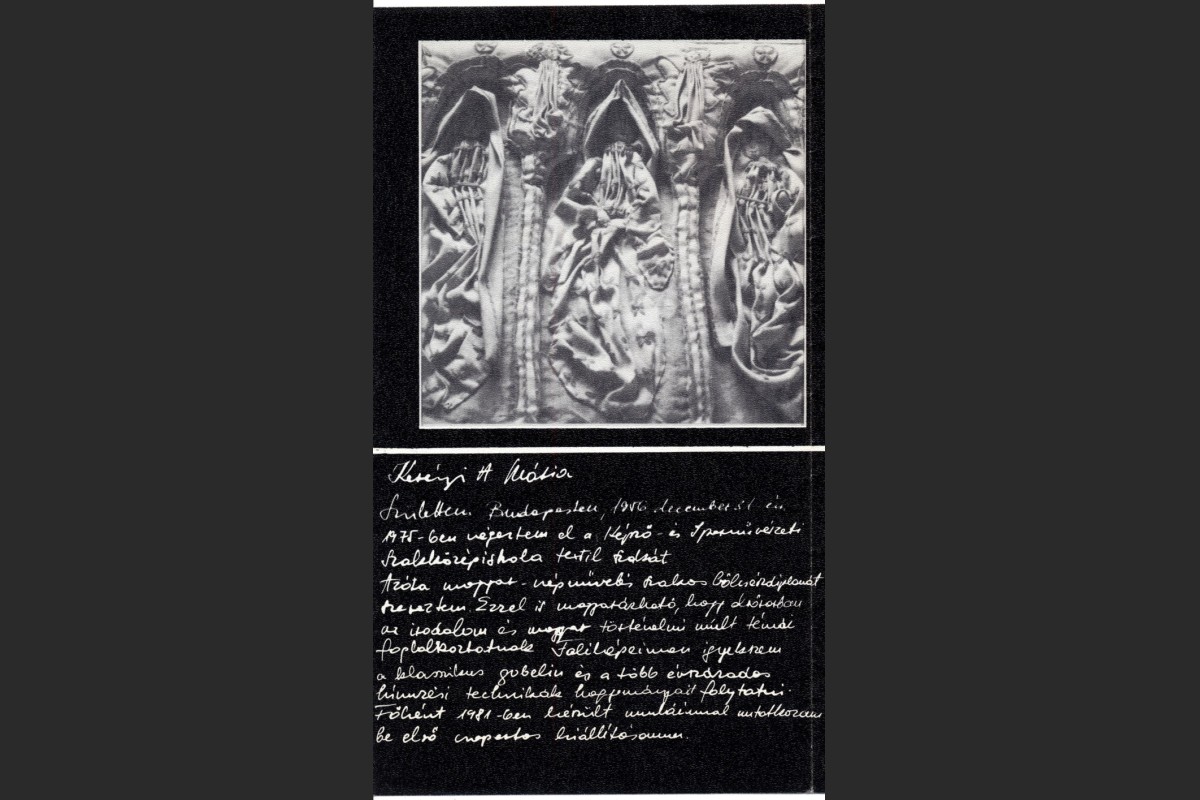 Kerényi A Mária
Születtem Budapesten, 1956 december 31 én
1975-ben végeztem el a Képző- és Iparművészeti
Szakközépiskola textil szakát
Azóta magyar-népművelés szakos bölcsészdiplomát
szereztem. Ezzel is magyarázható, hogy elsősorban
az irodalom és magyar történelmi múlt témái
foglalkoztatnak Faliképeimen igyekszem
a klasszikus gobelin és a több évszázados
hímzési technikák hagyományait folytatni.
Főként 1981-ben készült munkáimmal mutatkozom
be első csoportos kiállításomon.